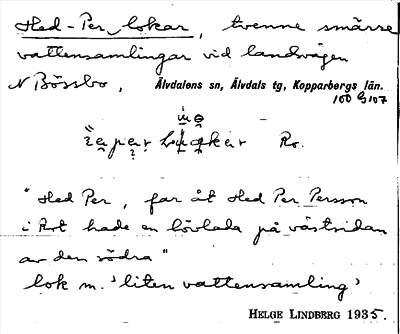 Hed-Per lokar, tvenne smärre
vattensamlingar vid landvägen
N Bössbo, Älvdalens sn, Älvdals tg, Kopparbergs län.
100 G 107
Ro.
"Hed Per, far åt Hed Per Persson
i Rot hade en hölada på västsidan
av den södra"
lok m. 'liten vattensamling'
HELGE LINDBERG 1935.